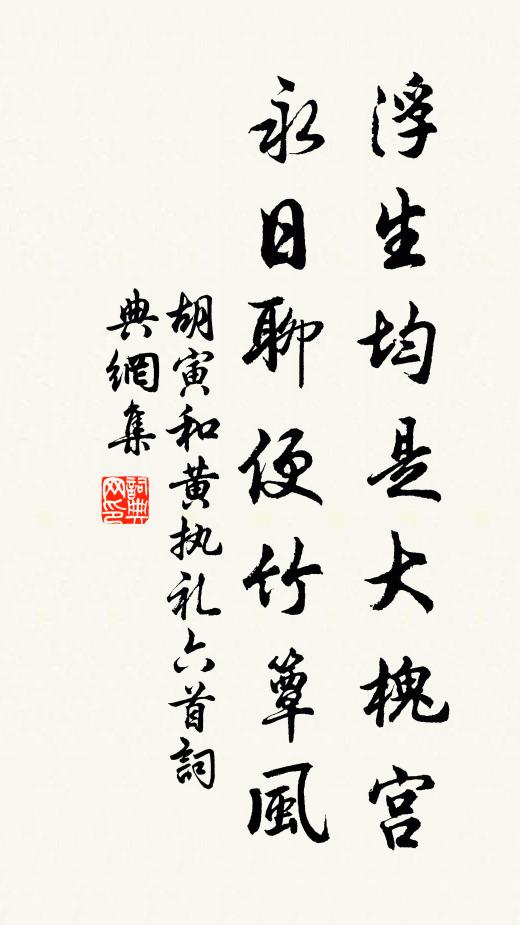 浮生均是大槐宫
永日聊便竹簟風
胡寅和黄执礼六首詞
典網集
詞典网印